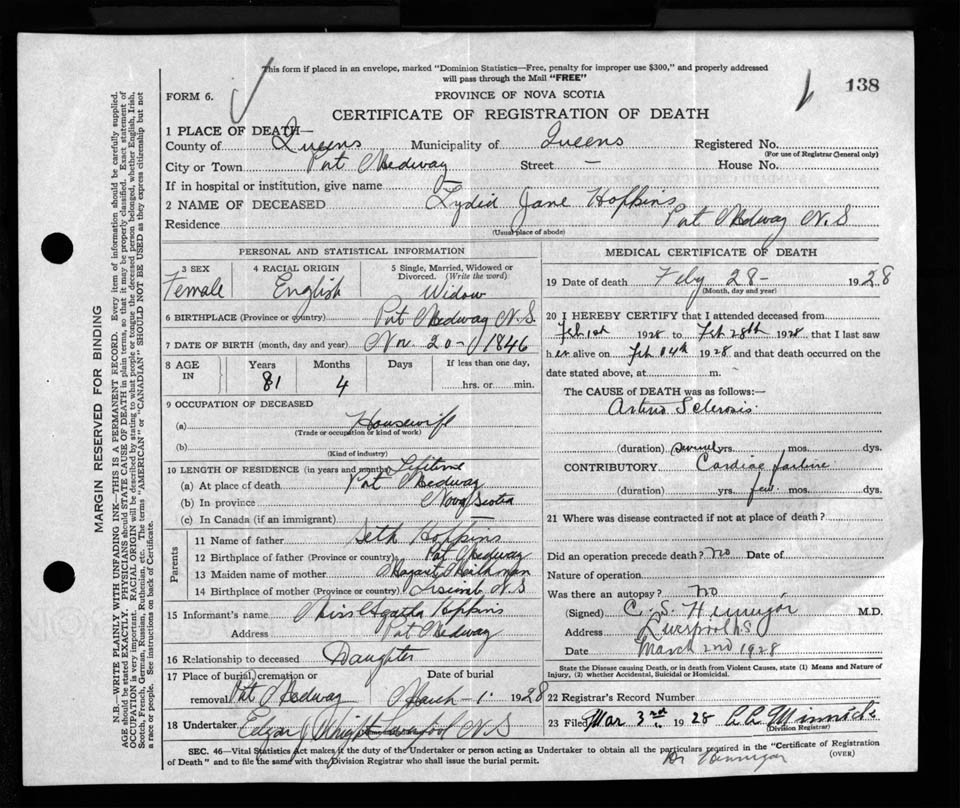 This form if placed in an envelope, marked "Dominion Statistics—Free, penalty for improper use $300," and properly addressed
will pass through the Mail "FREE"
138
FORM 6.
PROVINCE OF NOVA SCOTIA
CERTIFICATE OF REGISTRATION OF DEATH
1 PLACE OF DEATH—
County of Queens Municipality of Queens Registered No.
(For use of Registrar General only)
City or Town Port Medway Street — House No.
If in hospital or institution, give name —
2 NAME OF DECEASED Lydia Jane Hopkins
Residence Port Medway N.S
(Usual place of abode)
PERSONAL AND STATISTICAL INFORMATION
3 SEX 4 RACIAL ORIGIN 5 Single, Married, Widowed or
Divorced. (Write the word)
Female English Widow
6 BIRTHPLACE (Province or country) Port Medway N.S.
7 DATE OF BIRTH (month, day and year) Nov. 20 - 1846
8 AGE IN Years Months Days If less than one day,
81 4 hrs. or min.
9 OCCUPATION OF DECEASED
(a) Housewife
(Trade or occupation or kind of work)
(b)
(Kind of industry)
10 LENGTH OF RESIDENCE (in years and months) Lifetime
(a) At place of death Port Medway
(b) In province Nova Scotia
(c) In Canada (if an immigrant)
Parents
11 Name of father Seth Hopkins
12 Birthplace of father (Province or country) Port Medway
13 Maiden name of mother
14 Birthplace of mother (Province or country) N.S
15 Informant's name Miss Agatha Hopkins
Address Port Medway
16 Relationship to deceased Daughter
17 Place of burial, cremation or
removal Port Medway March 1. 1928
18 Undertaker Edgar N S
MEDICAL CERTIFICATE OF DEATH
19 Date of death Feby 28 - 1928
(Month, day and year)
20 I HEREBY CERTIFY that I attended deceased from
Feb 1st 1928 to Feb 28th 1928, that I last saw
her alive on Feb 1928 and that death occurred on the
date stated above, at m.
The CAUSE OF DEATH was as follows:—
Arterio Sclerosis.
(duration) several yrs. mos. dys.
CONTRIBUTORY Cardiac failure
(duration) yrs. few mos. dys.
21 Where was disease contracted if not at place of death?
Did an operation precede death? no Date of
Nature of operation
Was there an autopsy? no
(Signed) C. S. Hennigar M.D.
Address Liverpool N S
Date March 2nd 1928
State the Disease causing Death, or in death from Violent Causes, state (1) Means and Nature of
Injury, (2) whether Accidental, Suicidal or Homicidal.
22 Registrar's Record Number
23 Filed Mar 3rd 1928
(Division Registrar)
SEC. 46—Vital Statistics Act makes it the duty of the Undertaker or person acting as Undertaker to obtain all the particulars required in the "Certificate of Registration
of Death" and to file the same with the Division Registrar who shall issue the burial permit.
(OVER)
Dr Hennigar
MARGIN RESERVED FOR BINDING
N.B.—WRITE PLAINLY, WITH UNFADING INK—THIS IS A PERMANENT RECORD. Every item of information should be carefully supplied.
AGE should be stated EXACTLY. PHYSICIANS should STATE CAUSE OF DEATH in plain terms, so that it may be properly classified. Exact statement of
OCCUPATION is very important. RACIAL ORIGIN will be described by stating to what people or tongue the deceased person belonged, whether English, Irish,
Scotch, French, German, Russian, Ruthenian, etc. The terms "AMERICAN" or "CANADIAN" SHOULD NOT BE USED as they express citizenship but not
a race or people. See instructions on back of Certificate.